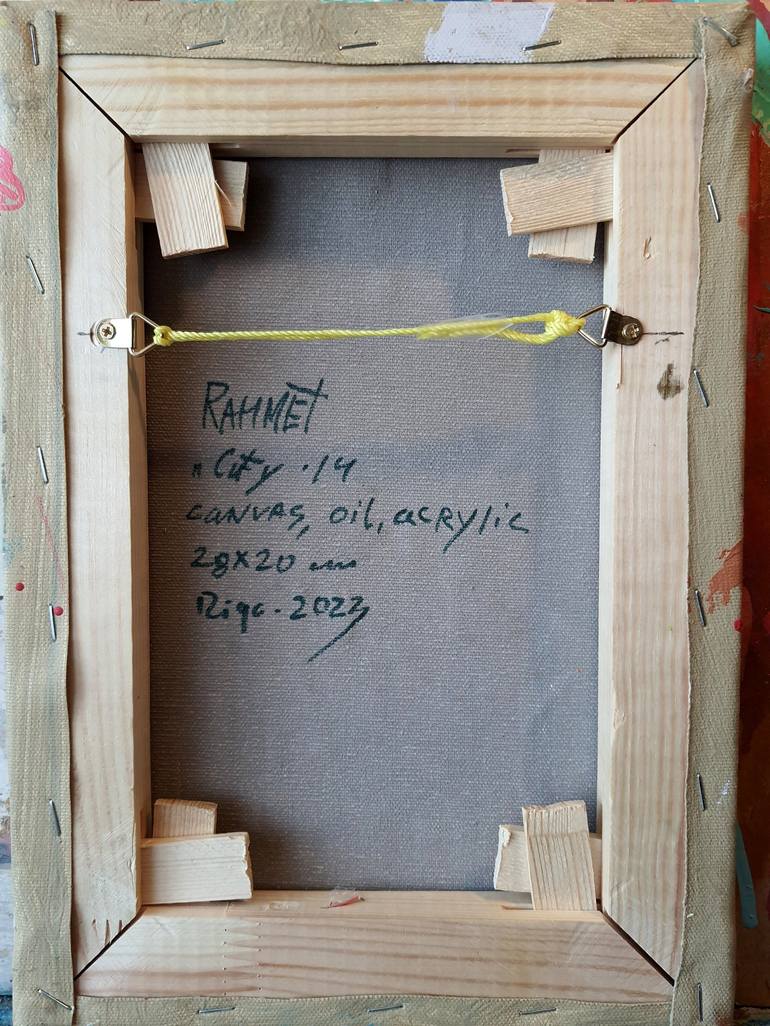 RAHMET
"City ·14
canvas, oil, acrylic
28x20 cm
Riga-2023